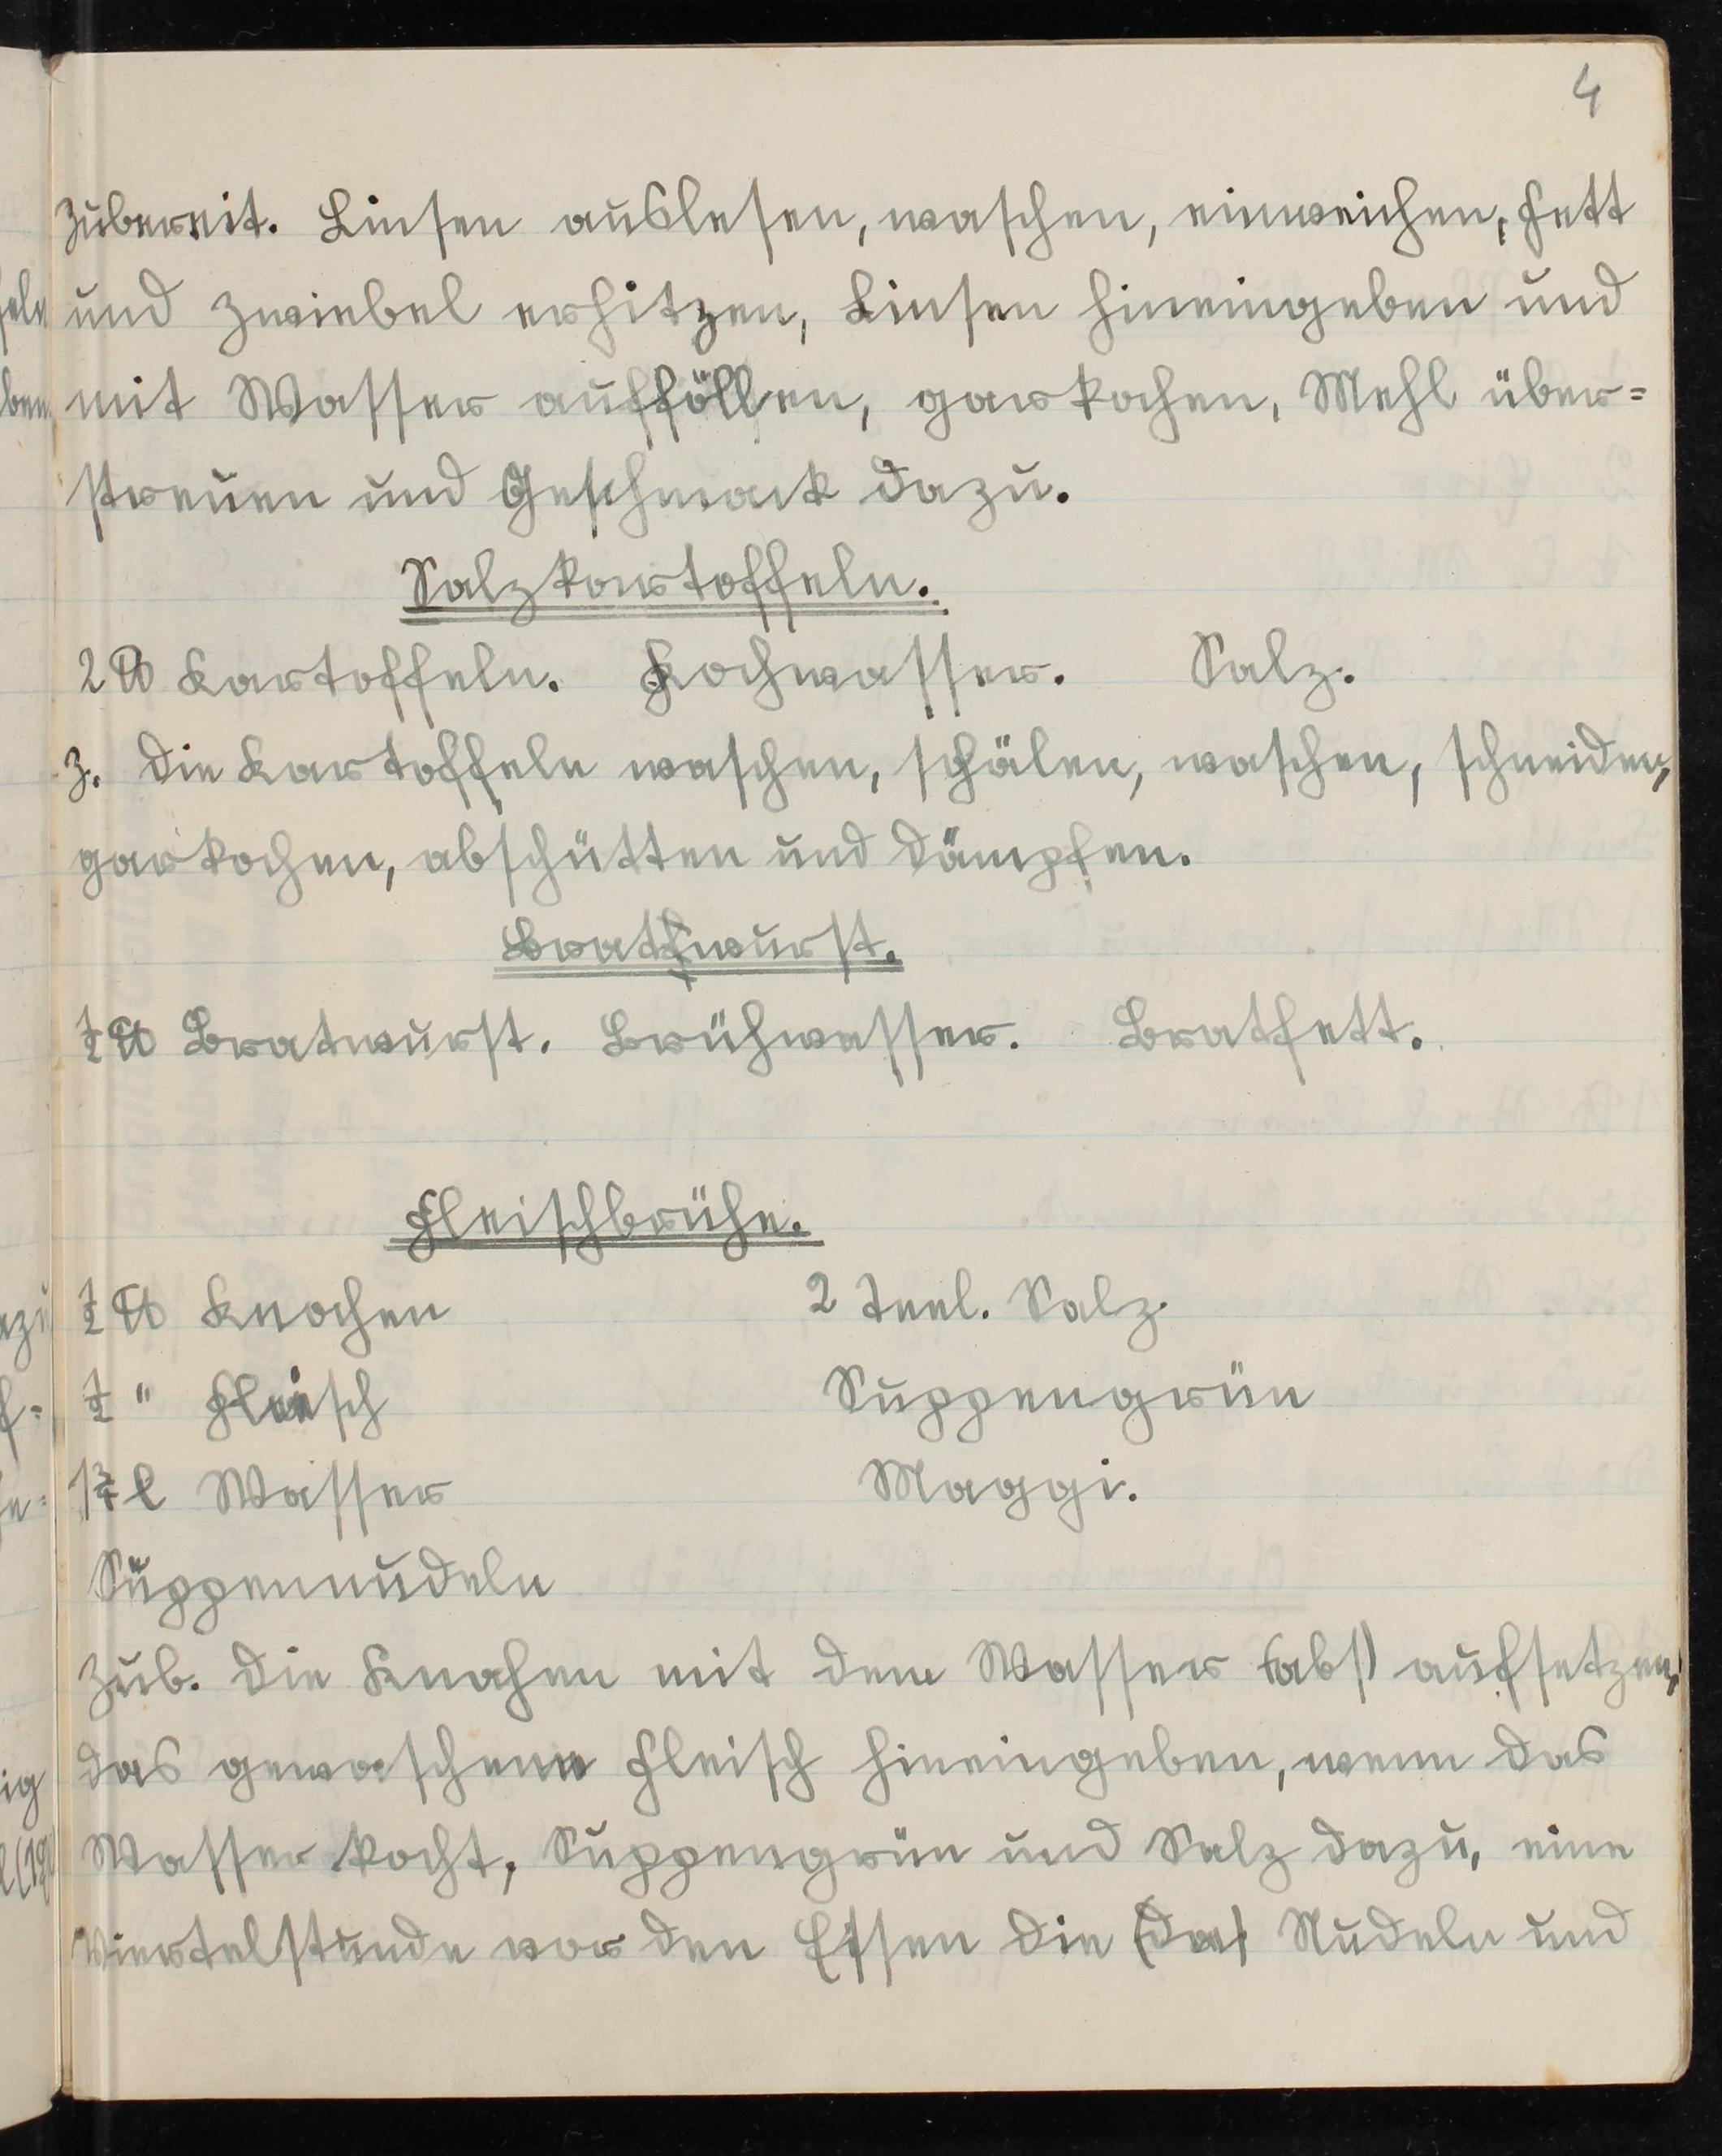 4
Zubereit. Linsen auslesen, waschen, einweichen, Fett
und Zwiebel erhitzen, Linsen hineingeben und
mit Wasser auffüllen, garkochen, Mehl über-
streuen und Geschmack dazu.
Salzkartoffeln.
2 ℔ Kartoffeln. Kochwasser. Salz.
Z. Die Kartoffeln waschen, schälen, waschen, schneiden,
garkochen, abschütten und dämpfen.
Bratwurst.
½ ℔ Bratwurst. Brühwasser. Bratfett.
Fleischbrühe.
½ ℔ Knochen 2 Teel. Salz.
½ " Fleisch Suppengrün
1¾ l Wasser Maggi.
Suppennudeln
Zub. Die Knochen mit dem Wasser (abs) aufsetzen,
das gewaschene Fleisch hineingeben, wenn das
Wasser kocht, Suppengrün und Salz dazu, eine
Viertelstunde vor den Essen die (das) Nudeln und